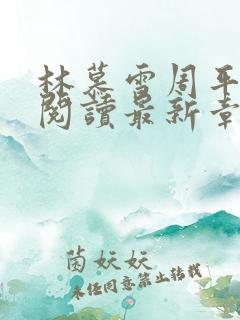 林慕雪周平
閱讀最新章
茵妖妖
未经同意禁止转载